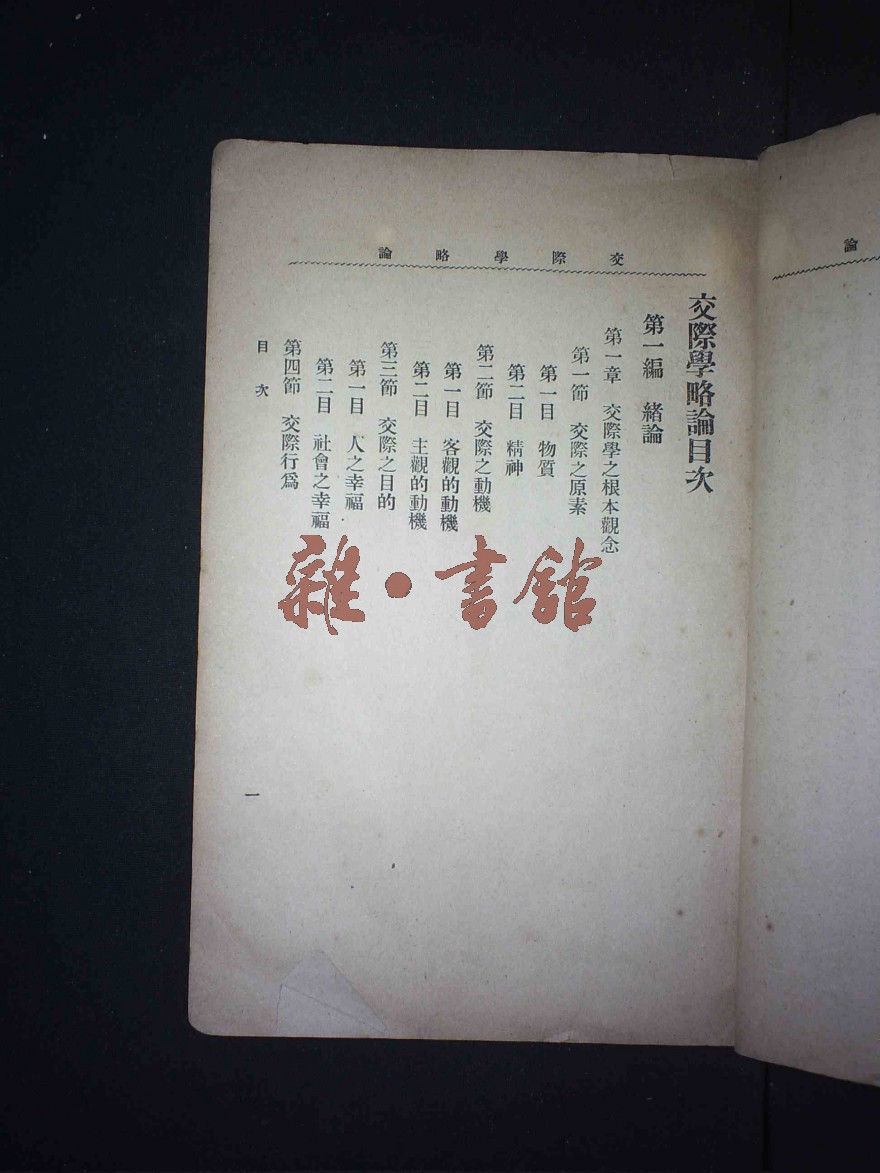 論　略　學　際　交
交際學略論目次
第一編　緒論
第一章　交際學之根本觀念
第一節　交際之原素
第一目　物質
第二目　精神
第二節　交際之動機
第一目　客觀的動機
第二目　主觀的動機
第三節　交際之目的
第一目　人之幸福
第二目　社會之幸福
第四節　交際行爲
目次
一
論
雜·書館